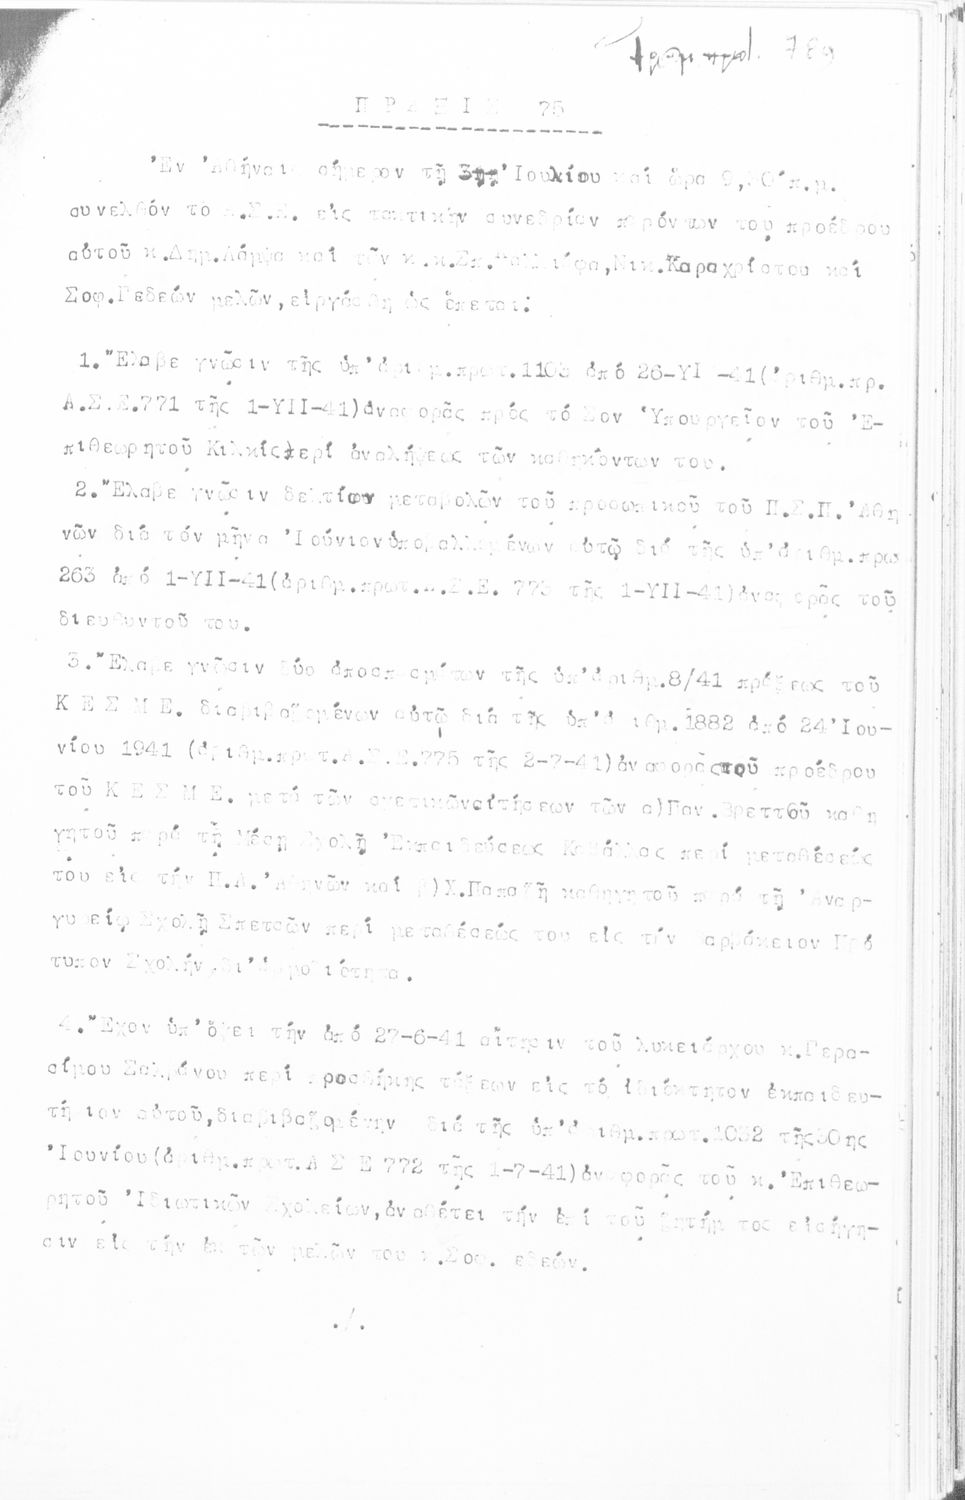 Ἀριθμ. πρωτ. 789
Π Ρ Α Ξ Ι Σ 75
Ἐν Ἀθήναις σήμερον τῇ 3ῃ Ἰουλίου καί ὥρα 9, π.μ.
συνελθόν το Α.Σ.Ε. εἰς τακτικήν συνεδρίαν παρόντων τοῦ προέδρου
αὐτοῦ κ.Δημ.Λάμψα καί τῶν κ.κ.Σπ. Νικ.Καραχρίστου καί
Σοφ.Γεδεών μελῶν,εἰργάσθη ὡς ἕπεται:
1.Ἔλαβε γνῶσιν τῆς ὑπ'ἀριθμ.πρωτ.1103 ἀπό 26-ΥΙ -41(ἀριθμ.πρ.
Α.Σ.Ε.771 τῆς 1-ΥΙΙ-41)ἀναφορᾶς πρός τό Σον Ὑπουργεῖον τοῦ Ἐ-
πιθεωρητοῦ Κιλκίς περί ἀναλήψεως τῶν καθηκόντων του.
2.Ἔλαβε γνῶσιν δελτίου μεταβολῶν τοῦ προσωπικοῦ τοῦ Π.Σ.Π.Ἀθη
νῶν διά τόν μῆνα Ἰούνιον ὑποβαλλομένων αὐτῷ διά τῆς ὑπ'ἀριθμ.πρω
263 ἀπό 1-ΥΙΙ-41(ἀριθμ.πρωτ.Α.Σ.Ε. 773 τῆς 1-ΥΙΙ-41)ἀναφορᾶς τοῦ
διευθυντοῦ του.
3.Ἔλαβε γνῶσιν δύο ἀποσπασμάτων τῆς ὑπ'ἀριθμ.8/41 πράξεως τοῦ
Κ Ε Σ Μ Ε. διαβιβαζομένων αὐτῷ διά τῆς ὑπ'ἀριθμ.1882 ἀπό 24 Ἰου-
νίου 1941 (ἀριθμ.πρωτ.Α.Σ.Ε.775 τῆς 2-7-41)ἀναφορᾶς τοῦ προέδρου
τοῦ Κ Ε Σ Μ Ε. μετά τῶν σχετικῶν αἰτήσεων τῶν α)Παν.Βρεττοῦ καθη
γητοῦ παρά τῇ Μέσῃ Σχολῇ Ἐκπαιδεύσεως Καβάλλας περί μεταθέσεώς
του εἰς τήν Π.Α.Ἀθηνῶν καί β)Χ.Παπαζῆ καθηγητοῦ παρά τῇ Ἀναρ-
γυρείῳ Σχολῇ Σπετσῶν περί μεταθέσεώς του εἰς τήν Βαρβάκειον Πρό
τυπον Σχολήν,δι'ἁρμοδιότητα.
4.Ἔχον ὑπ'ὄψει τήν ἀπό 27-6-41 αἴτησιν τοῦ λυκειάρχου κ.Γερα-
σίμου Σαλβάνου περί προσθήκης τάξεων εἰς τό ἰδιόκτητον ἐκπαιδευ-
τήριον αὐτοῦ,διαβιβαζομένην διά τῆς ὑπ'ἀριθμ.πρωτ.1032 τῆς 30ης
Ἰουνίου(ἀριθμ.πρωτ.Α Σ Ε 772 τῆς 1-7-41)ἀναφορᾶς τοῦ κ.Ἐπιθεω-
ρητοῦ Ἰδιωτικῶν Σχολείων,ἀναθέτει τήν ἐπί τοῦ ζητήματος εἰσήγη-
σιν εἰς τήν ἐκ τῶν μελῶν του κ.Σοφ. Γεδεών.
./.